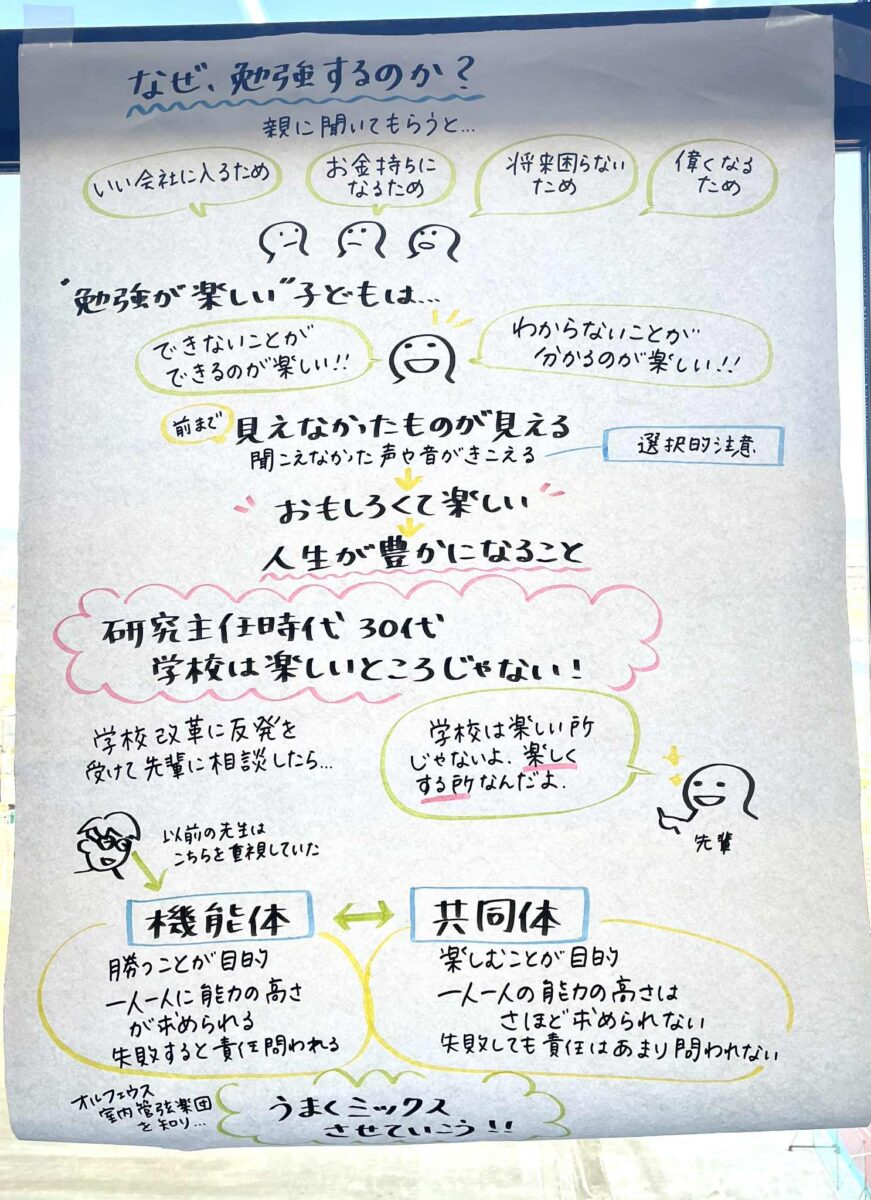 なぜ、勉強するのか?
親に聞いてもらうと…
いい会社に入るため
お金持ちに
なるため
将来困らない
ため
偉くなる
ため
"勉強が楽しい"子どもは…
できないことが
できるのが楽しい!!
わからないことが
分かるのが楽しい!!
前まで
見えなかったものが見える
聞こえなかった声や音がきこえる
選択的注意
おもしろくて楽しい
人生が豊かになること
研究主任時代 30代
学校は楽しいところじゃない!
学校改革に反発を
受けて先輩に相談したら…
学校は楽しい所
じゃないよ.楽しく
する所なんだよ.
先輩
以前の先生は
こちらを重視していた
機能体
共同体
勝つことが目的
一人一人に能力の高さ
が求められる
失敗すると責任問われる
楽しむことが目的
一人一人の能力の高さは
さほど求められない
失敗しても責任はあまり問われない
オルフェウス
室内管弦楽団
を知り…
うまくミックス
させていこう!!